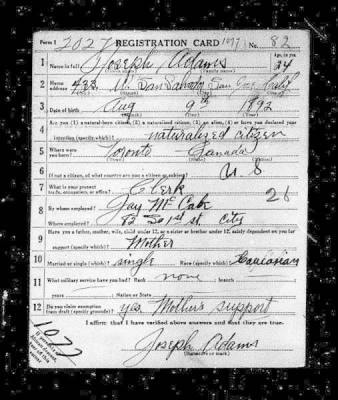 Form 1 2027 REGISTRATION CARD 1977 No. 82
1 Name in full Joseph Adams Age, in yrs. 24
(Given name) (Family name)
2 Home address 433 W. San Salvador San Jose Calif
3 Date of birth Aug 9th 1892
(Month) (Day) (Year)
4 Are you (1) a natural-born citizen, (2) a naturalized citizen, (3) an alien, (4) or have you declared your
intention (specify which)? naturalized citizen
5 Where were you born? Toronto Canada
6 If not a citizen, of what country are you a citizen or subject? U. S
7 What is your present trade, occupation, or office? Clerk 26
8 By whom employed? Jay McCabe
Where employed? So 1st st. City
9 Have you a father, mother, wife, child under 12, or a sister or brother under 12, solely dependent on you for
support (specify which)? Mother
10 Married or single (which)? single Race (specify which)? Caucasian
11 What military service have you had? Rank none branch
years Nation or State
12 Do you claim exemption from draft (specify grounds)? yes Mother's support
I affirm that I have verified above answers and that they are true.
1977
Joseph Adams
(Signature or mark)